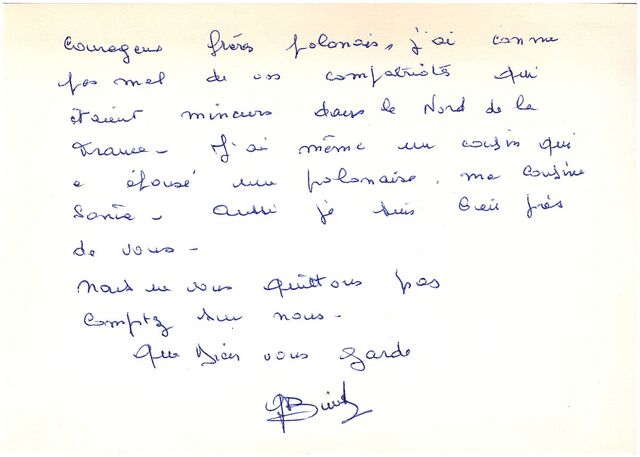 Courageux frères polonais, j'ai connu
pas mal de vos compatriotes qui
étaient mineurs dans le Nord de la
France - J'ai même un cousin qui
a épousé une polonaise, ma cousine
Sonia - Aussi je suis bien près
de vous -
Nous ne vous quittons pas
Comptez sur nous -
Que Dieu vous garde